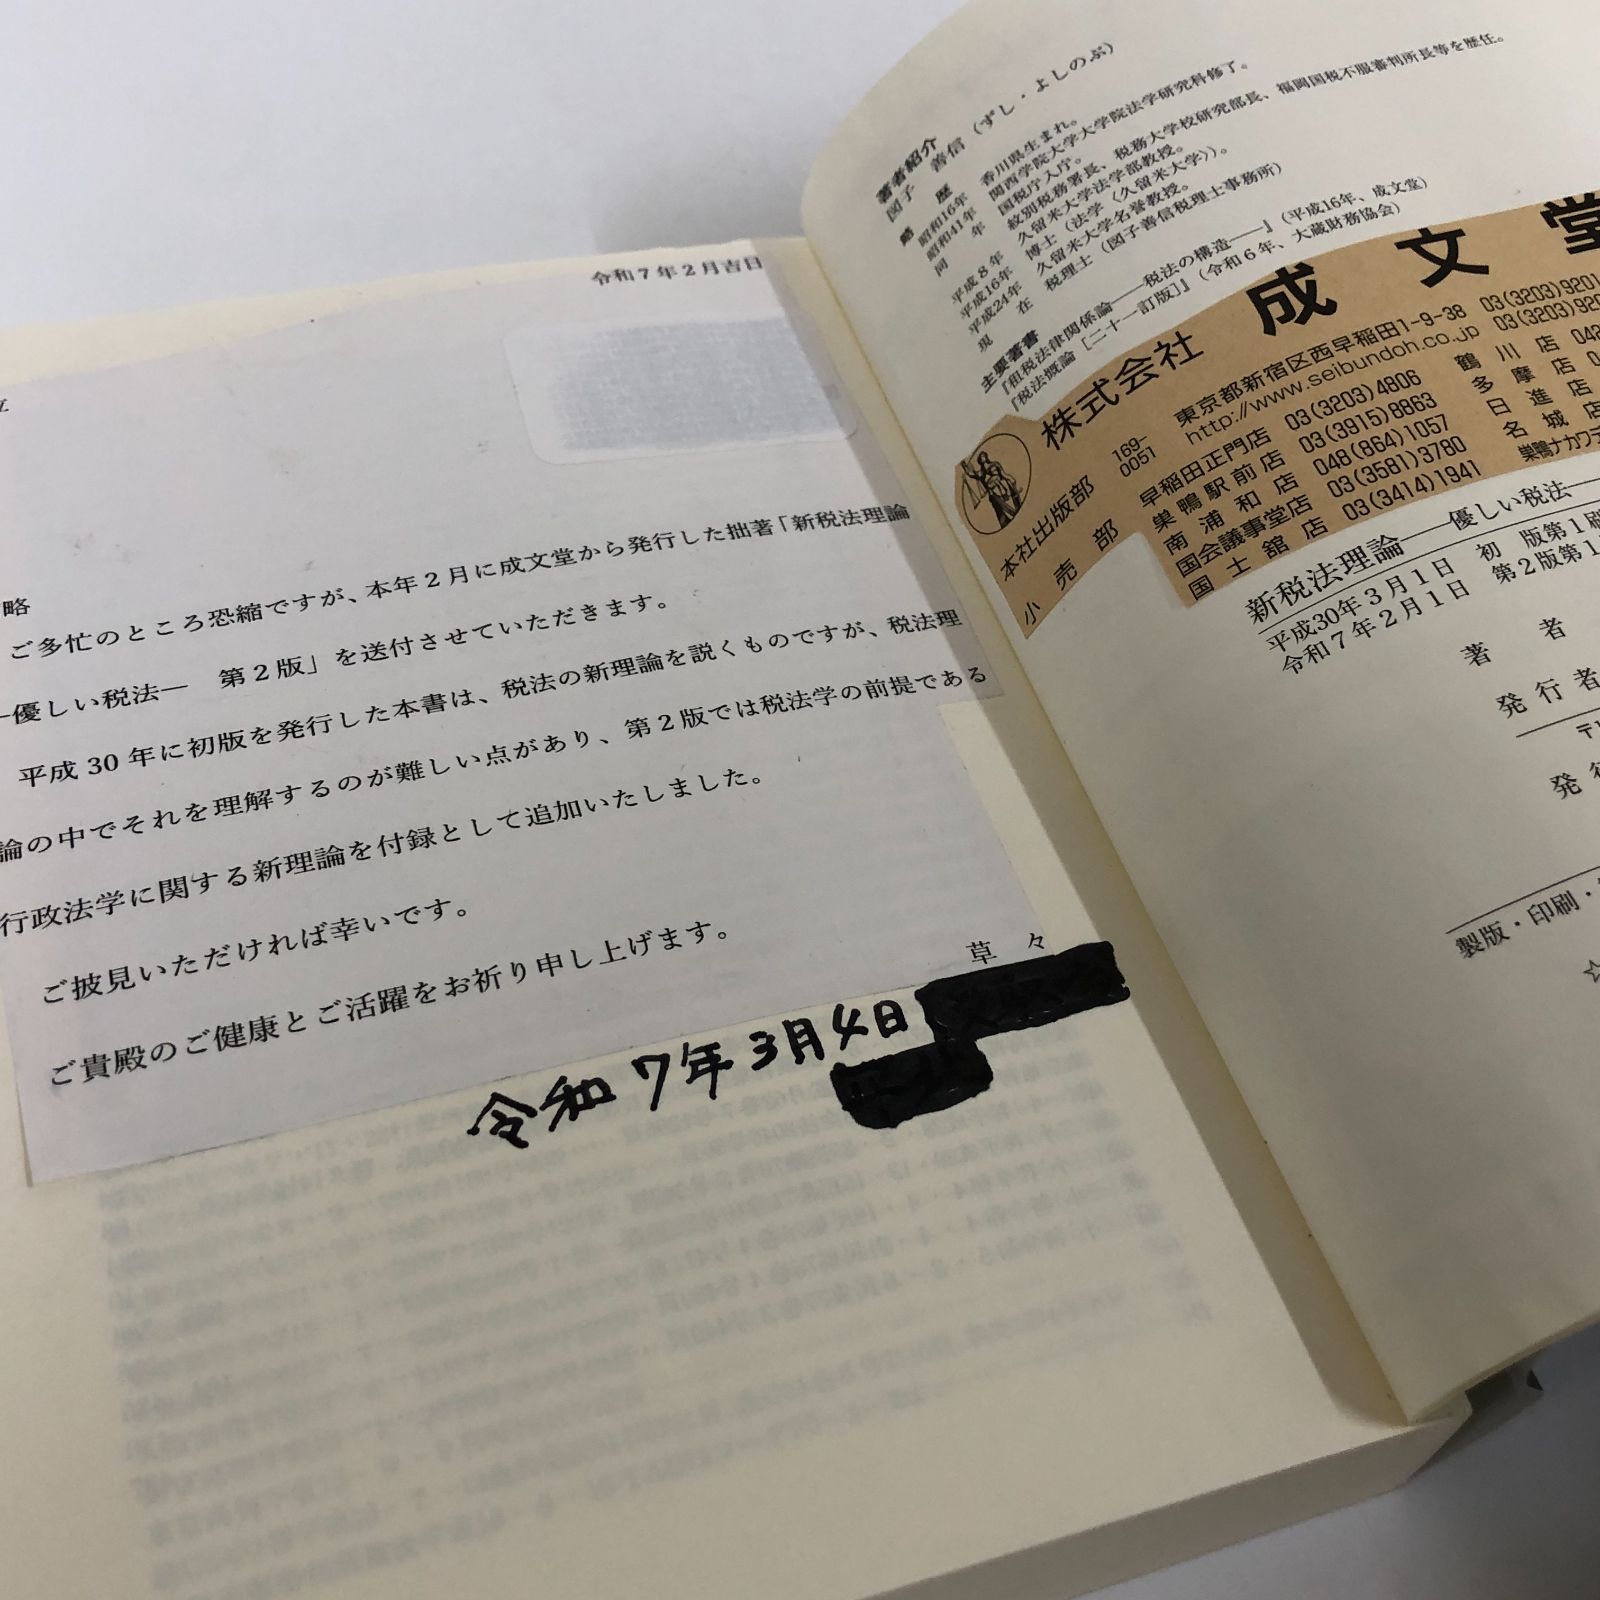 令和７年２月吉日
略
ご多忙のところ恐縮ですが、本年２月に成文堂から発行した拙著「新税法理論
―優しい税法―　第２版」を送付させていただきます。
平成 30 年に初版を発行した本書は、税法の新理論を説くものですが、税法理
論の中でそれを理解するのが難しい点があり、第２版では税法学の前提である
行政法学に関する新理論を付録として追加いたしました。
ご披見いただければ幸いです。
ご貴殿のご健康とご活躍をお祈り申し上げます。
草々
令和7年3月4日
著者紹介
図子　善信（ずし・よしのぶ）
略　歴
昭和16年　香川県生まれ。
昭和41年　関西学院大学大学院法学研究科修了。
同　年　国税庁入庁。
紋別税務署長、税務大学校研究部長、福岡国税不服審判所長等を歴任。
平成８年　久留米大学法学部教授。
平成16年　博士（法学〈久留米大学〉）。
平成24年　久留米大学名誉教授。
現　在　税理士（図子善信税理士事務所）
主要著書
『租税法律関係論――税法の構造――』（平成16年、成文堂）
『税法概論［二十一訂版］』（令和６年、大蔵財務協会）
株式会社 成文堂
本社出版部 169-0051 東京都新宿区西早稲田1-9-38 03(3203)9201
http://www.seibundoh.co.jp 03(3203)920
小売部 早稲田正門店 03(3203)4806 鶴川店 042
巣鴨駅前店 03(3915)8863 多摩店 04
南浦和店 048(864)1057 日進店
国会議事堂店 03(3581)3780 名城店
国士舘店 03(3414)1941 巣鴨ナカワデ
新税法理論――優しい税法―
平成30年３月１日　初　版第１刷
令和７年２月１日　第２版第１
著　者
発行者
〒1
発行
製版・印刷・
☆